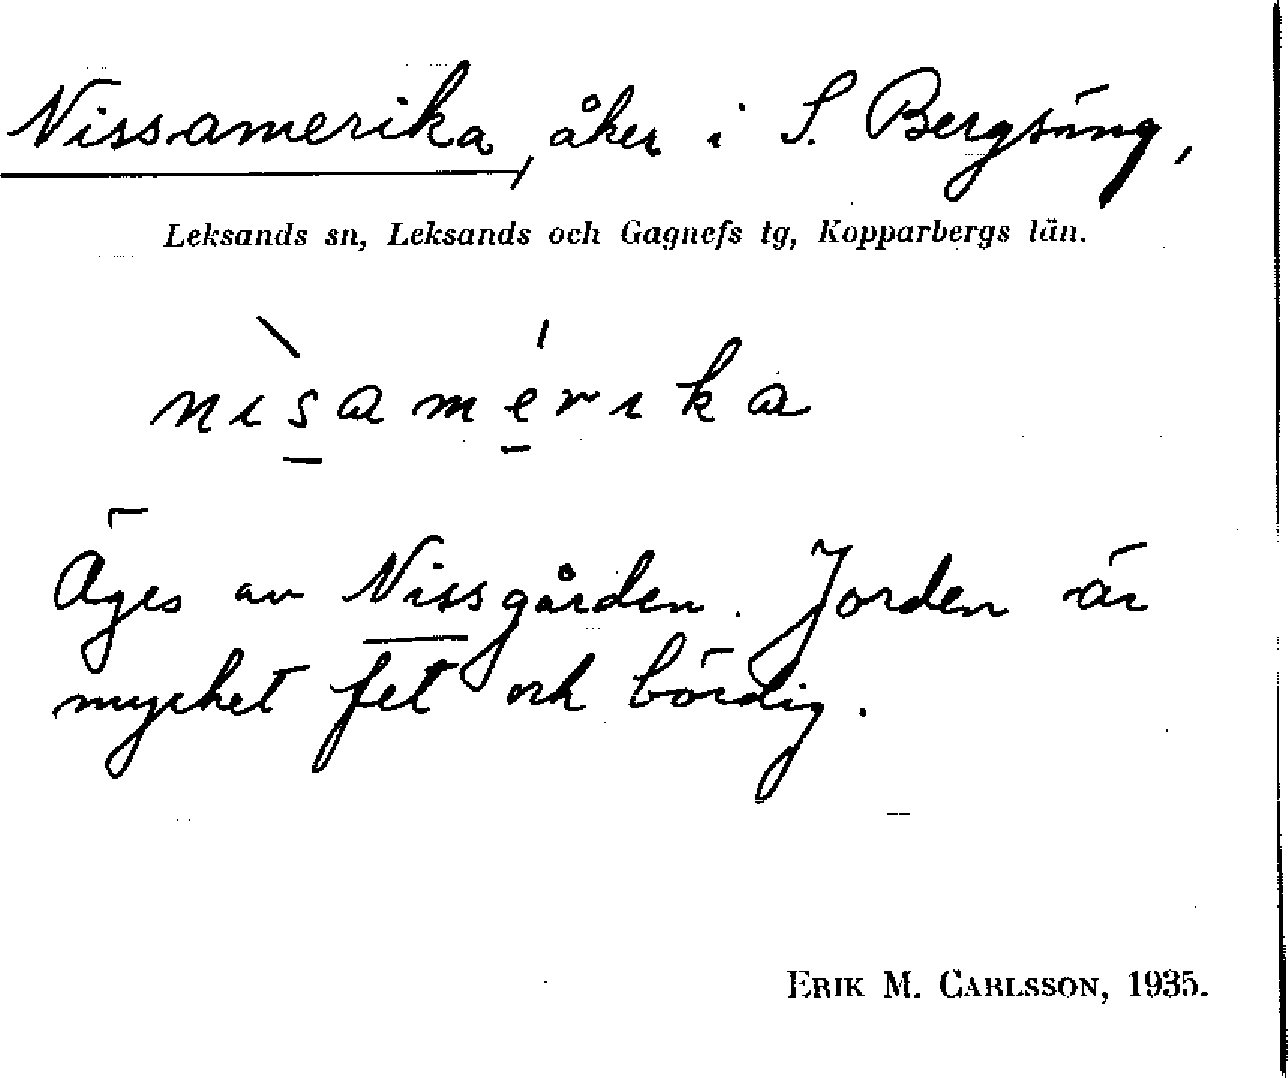 Nissamerika, åker i S. Bergsäng,
Leksands sn, Leksands och Gagnefs tg, Kopparbergs län.
nisamerika
Äges av Nissgården. Jorden är
mycket fet och bördig.
ERIK M. CARLSSON, 1935.